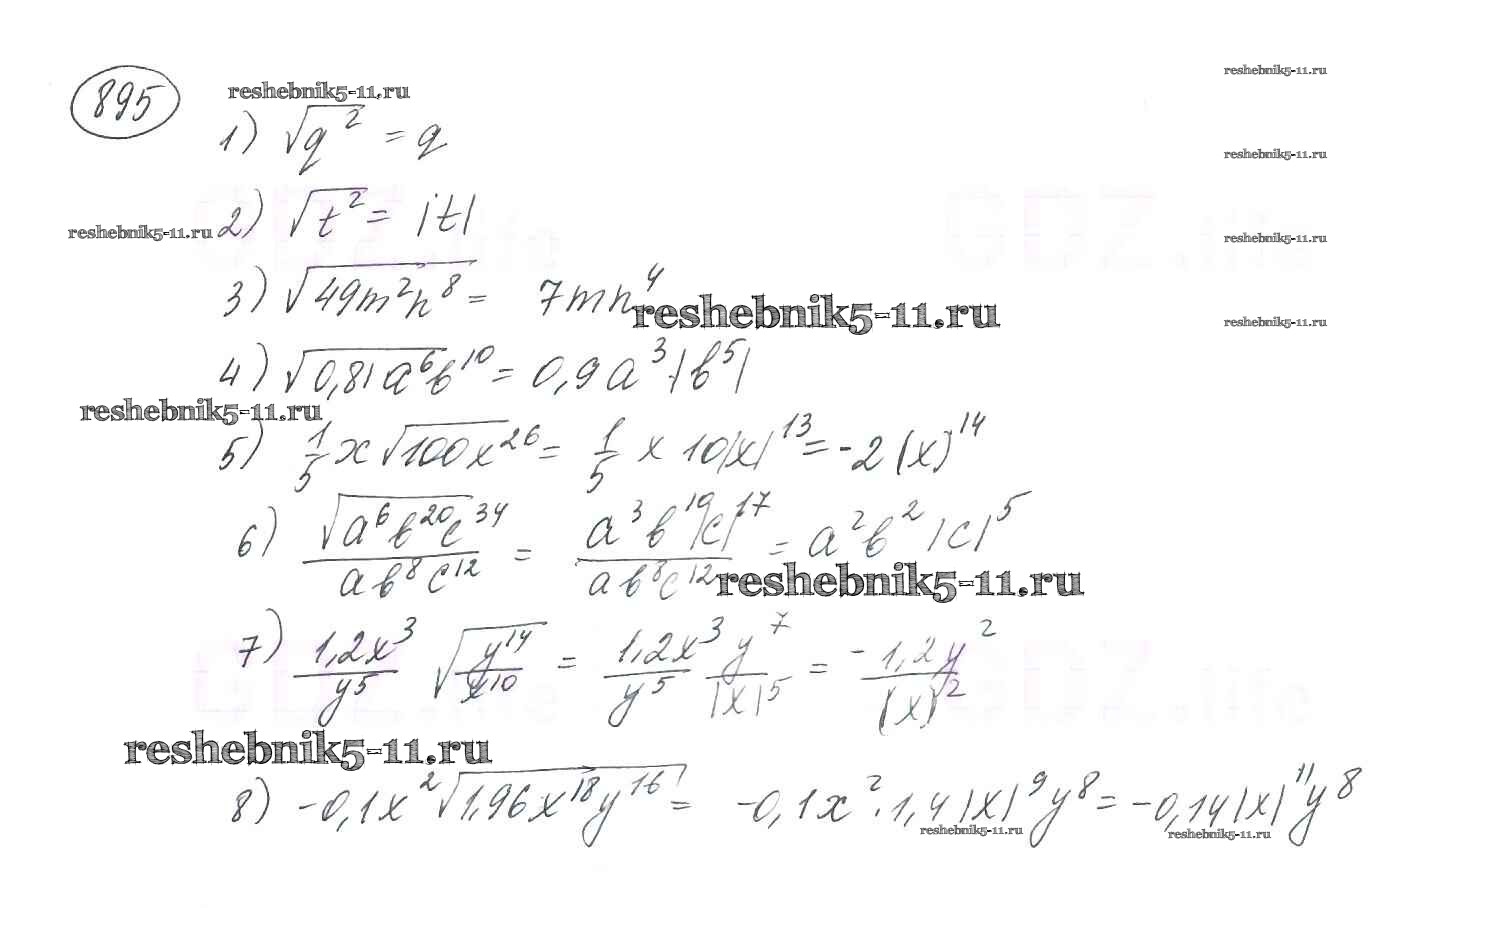 895
reshebnik5-11.ru
reshebnik5-11.ru
1) √(q²) = q
reshebnik5-11.ru
2) √(t²) = |t|
reshebnik5-11.ru
reshebnik5-11.ru
GDZ.life
GDZ.life
3) √(49m²n⁸) = 7mn⁴
reshebnik5-11.ru
reshebnik5-11.ru
4) √(0,81a⁶b¹⁰) = 0,9a³·|b⁵|
reshebnik5-11.ru
5) 1/5 x √(100x²⁶) = 1/5 x 10|x|¹³ = -2(x)¹⁴
6) √(a⁶b²⁰c³⁴)/(ab⁸c¹²) = a³b¹⁰|c|¹⁷/(ab⁸c¹²) = a²b²|c|⁵
reshebnik5-11.ru
7) 1,2x³/y⁵ √(y¹⁴/x¹⁰) = 1,2x³/y⁵ y⁷/|x|⁵ = -1,2y²/(x)²
GDZ.life
GDZ.life
reshebnik5-11.ru
8) -0,1x²√(1,96x¹⁸y¹⁶) = -0,1x²·1,4|x|⁹y⁸ = -0,14|x|¹¹y⁸
reshebnik5-11.ru
reshebnik5-11.ru